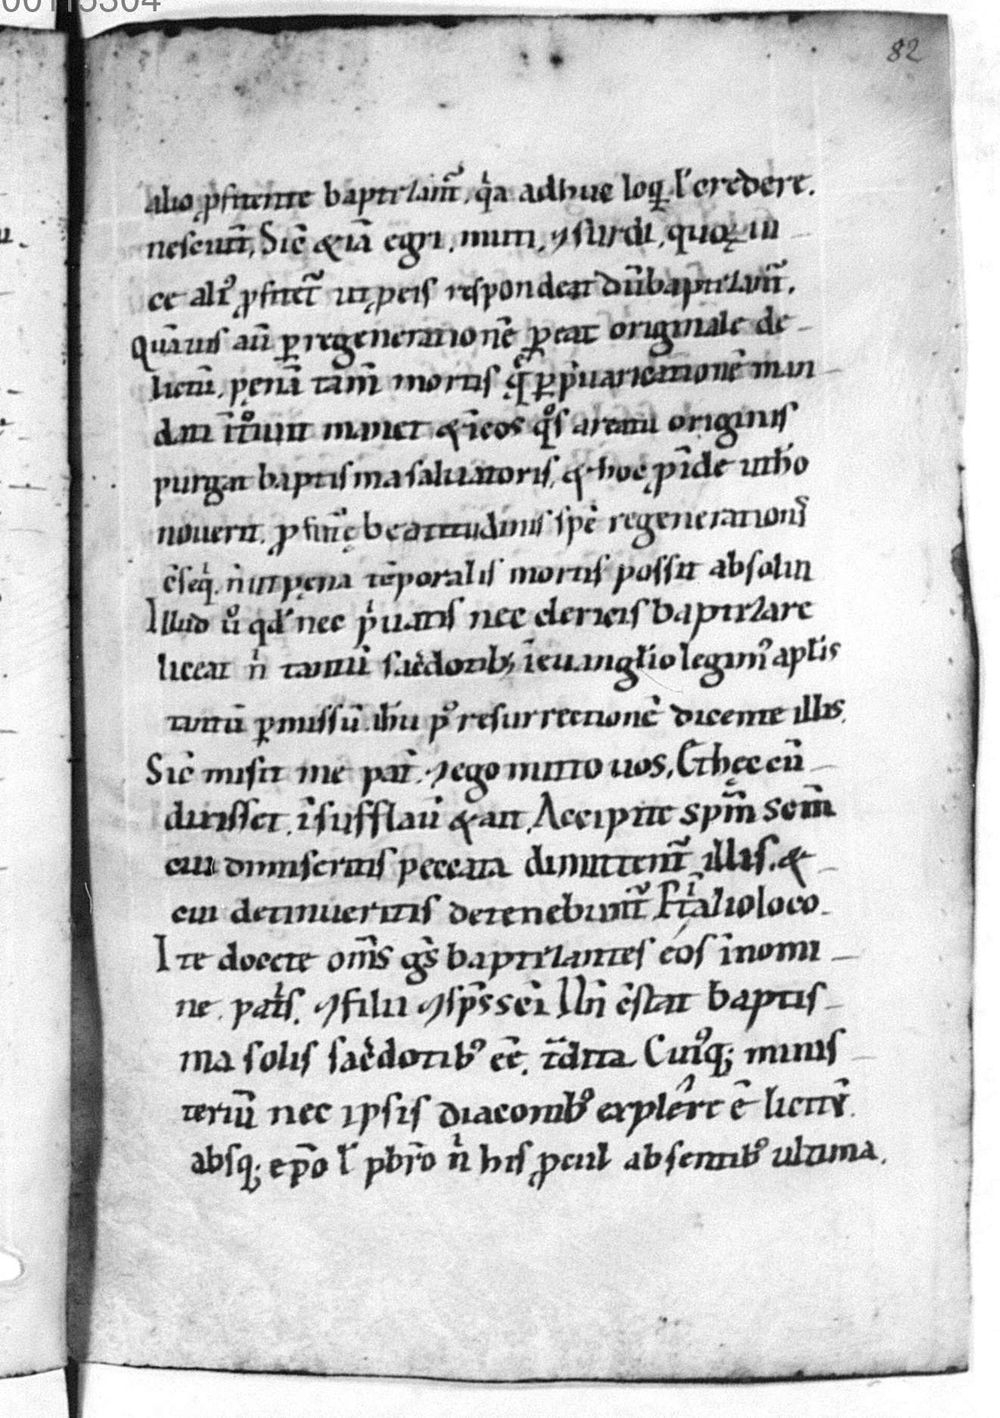 00115304
82
alio ꝓfitente baptizant̄, qͥa adhuc loqͥ l᷎ credere.
nesciunt̄, Sic̄ &iā egri, muti, ⁊ surdi, quoꝝ ui-
ce aliꝰ ꝓfitet᷑ ut ꝑ eis respondeat dū baptizant᷑.
Quāuis aū ꝑ regeneratione᷑ ꝑeat originale de-
lictū, pęna tam̄ mortis q̄ ꝑ p̄uaricationē man-
dati īt͛uit manet & ī eos qͦs a reatu originis
purgat baptisma saluatoris, & hoc ꝓīde ut hō
nouerit, ꝓ futurę beatitudinis spē regenerationis̄
c̄seqͥ, n̄ ut pęna tēporalis mortis possit absolui
Illud ū qd̄ nec pͥuatis nec clericis baptizare
liceat nͥ tantū sac̄dotibꝫ, ī euanglio legimꝰ aptis
tantū ꝑmissū ihu pꝰ resurrectionē dicente illis.
Sic̄ misit me pat̄, ⁊ ego mitto uos, Et hęc cū
dixisset, īsufflauī & ait, Accipite spm̄ scm̄
cui dimiseritis peccata dimittent᷑ illis, &
cui detinueritis detenebunt᷑ Et ī alio loco-
Ite docete om̄s gs̄ baptizantes eos ī nomi-
ne, patͥs, ⁊ filii ⁊ sps̄ sc̄i Un̄ c̄stat baptis-
ma solis sac̄dotibꝰ eē, t̄dita Cuiꝰq; minis-
teriū nec ipsis diaconibꝰ explēre ē licitū.
absq; epō l᷎ pbr̄o nͥ his ꝓcul absentibꝰ ultima.